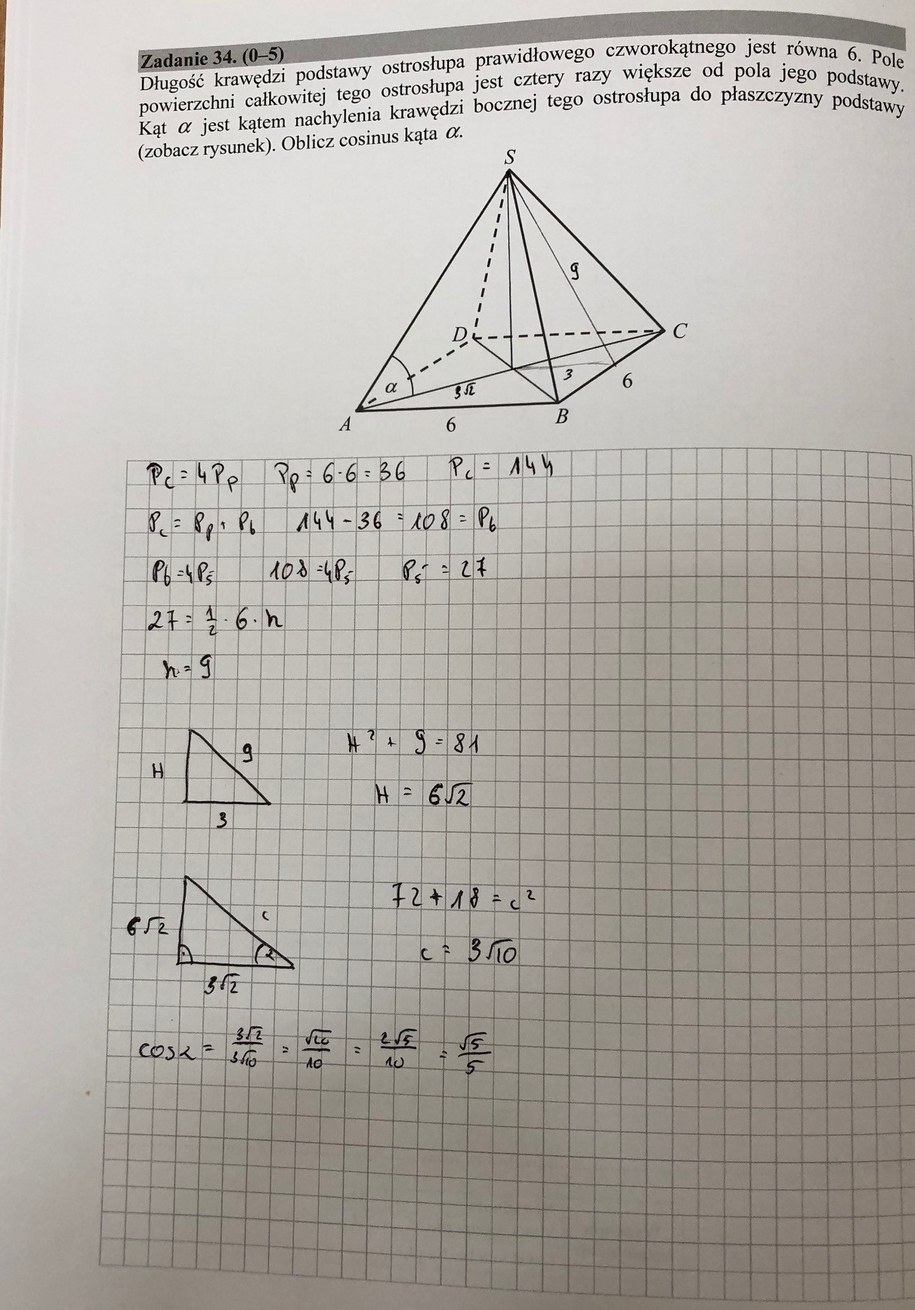 Zadanie 34. (0–5)
Długość krawędzi podstawy ostrosłupa prawidłowego czworokątnego jest równa 6. Pole
powierzchni całkowitej tego ostrosłupa jest cztery razy większe od pola jego podstawy.
Kąt α jest kątem nachylenia krawędzi bocznej tego ostrosłupa do płaszczyzny podstawy
(zobacz rysunek). Oblicz cosinus kąta α.
S
9
D
C
α
3√2
3
6
A
6
B
Pc = 4Pp Pp = 6·6 = 36 Pc = 144
Pc = Pp + Pb 144 - 36 = 108 = Pb
Pb = 4Ps 108 = 4Ps Ps = 27
27 = 1/2 · 6 · h
h = 9
H 9 H² + 9 = 81
3 H = 6√2
6√2 c 72 + 18 = c²
α c = 3√10
3√2
cosα = 3√2/3√10 = √20/10 = 2√5/10 = √5/5